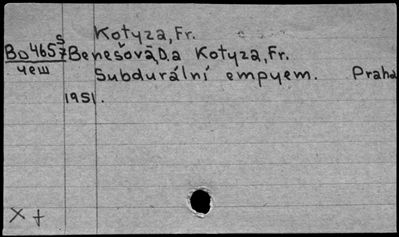 Kotyza, Fr.
Bo 465 5/7 Benešová, D. a Kotyza, Fr.
чеш Subdurální empyem. Praha
1951.
X +